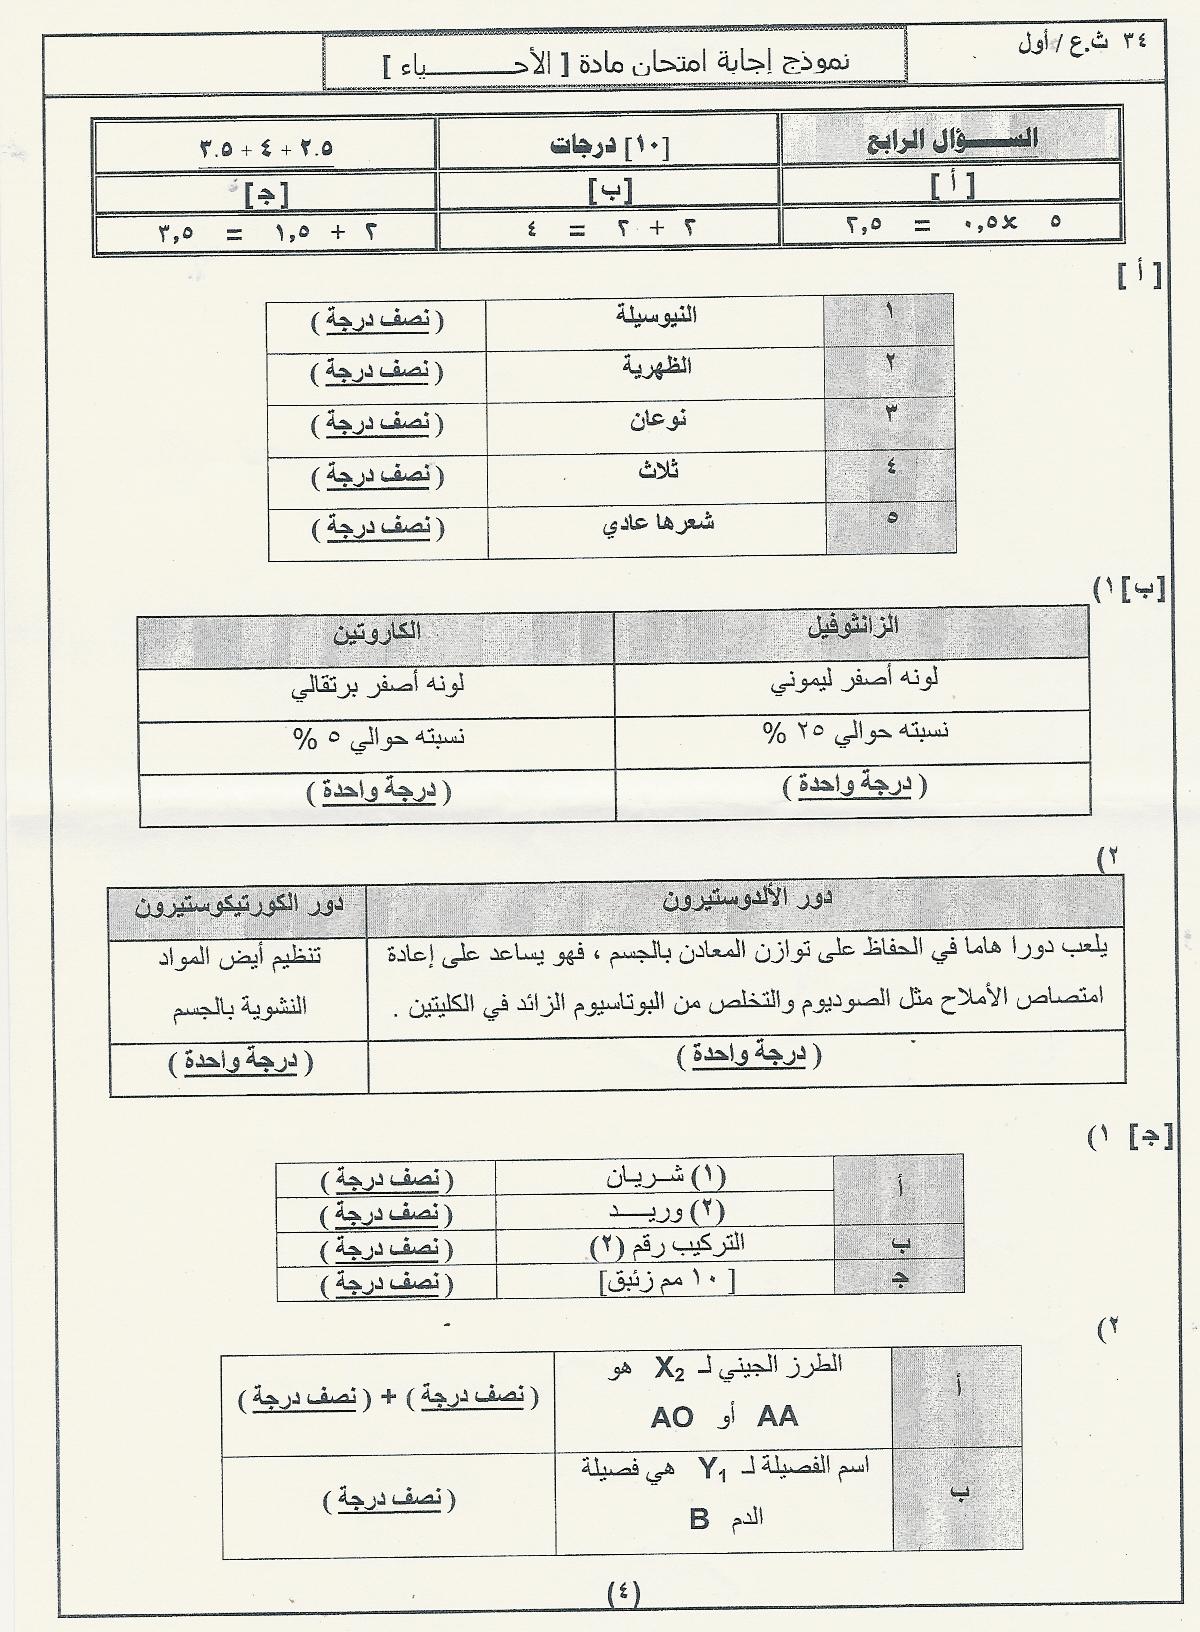 ٣٤ ث.ع / أول
نموذج إجابة امتحان مادة [ الأحـــــــياء ]
الســـــؤال الرابع [١٠] درجات ٢.٥ + ٤ + ٣.٥
[ أ ] [ب] [ج]
٥ ×٠,٥ = ٢,٥ ٢ + ٢ = ٤ ٢ + ١,٥ = ٣,٥
[ أ ]
١ النيوسيلة ( نصف درجة )
٢ الظهرية ( نصف درجة )
٣ نوعان ( نصف درجة )
٤ ثلاث ( نصف درجة )
٥ شعرها عادي ( نصف درجة )
[ب] ١)
الزانثوفيل الكاروتين
لونه أصفر ليموني لونه أصفر برتقالي
نسبته حوالي ٢٥ % نسبته حوالي ٥ %
( درجة واحدة ) ( درجة واحدة )
٢)
دور الألدوستيرون دور الكورتيكوستيرون
يلعب دورا هاما في الحفاظ على توازن المعادن بالجسم ، فهو يساعد على إعادة تنظيم أيض المواد
امتصاص الأملاح مثل الصوديوم والتخلص من البوتاسيوم الزائد في الكليتين . النشوية بالجسم
( درجة واحدة ) ( درجة واحدة )
[ج] ١)
أ (١) شـريـان ( نصف درجة )
(٢) وريـــد ( نصف درجة )
ب التركيب رقم (٢) ( نصف درجة )
ج [ ١٠ مم زئبق] ( نصف درجة )
٢)
أ الطرز الجيني لـ X2 هو ( نصف درجة ) + ( نصف درجة )
AA أو AO
ب اسم الفصيلة لـ Y1 هي فصيلة ( نصف درجة )
الدم B
(٤)